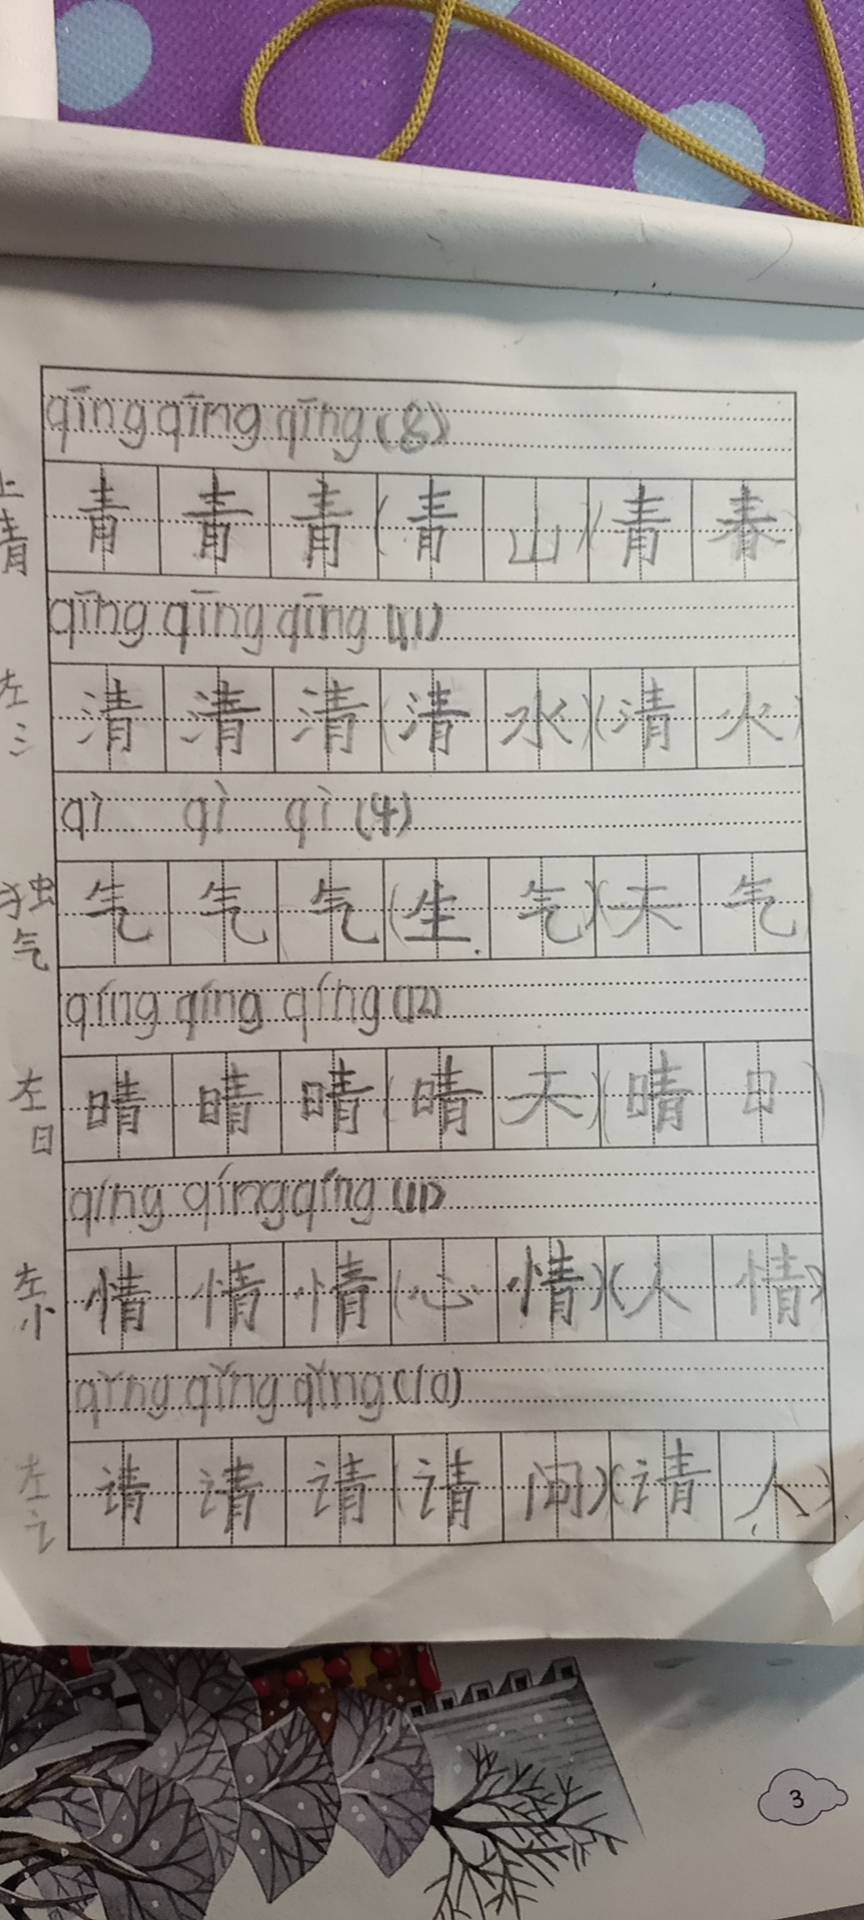 qīng qīng qīng (8)
上青 青 青 青 (青 山) (青 春)
qīng qīng qīng (11)
左氵 清 清 清 (清 水) (清 火)
qì qì qì (4)
独气 气 气 气 (生 气) (天 气)
qíng qíng qíng (12)
左日 晴 晴 晴 (晴 天) (晴 日)
qíng qíng qíng (11)
左忄 情 情 情 (心 情) (人 情)
qǐng qǐng qǐng (10)
左讠 请 请 请 (请 问) (请 人)
3